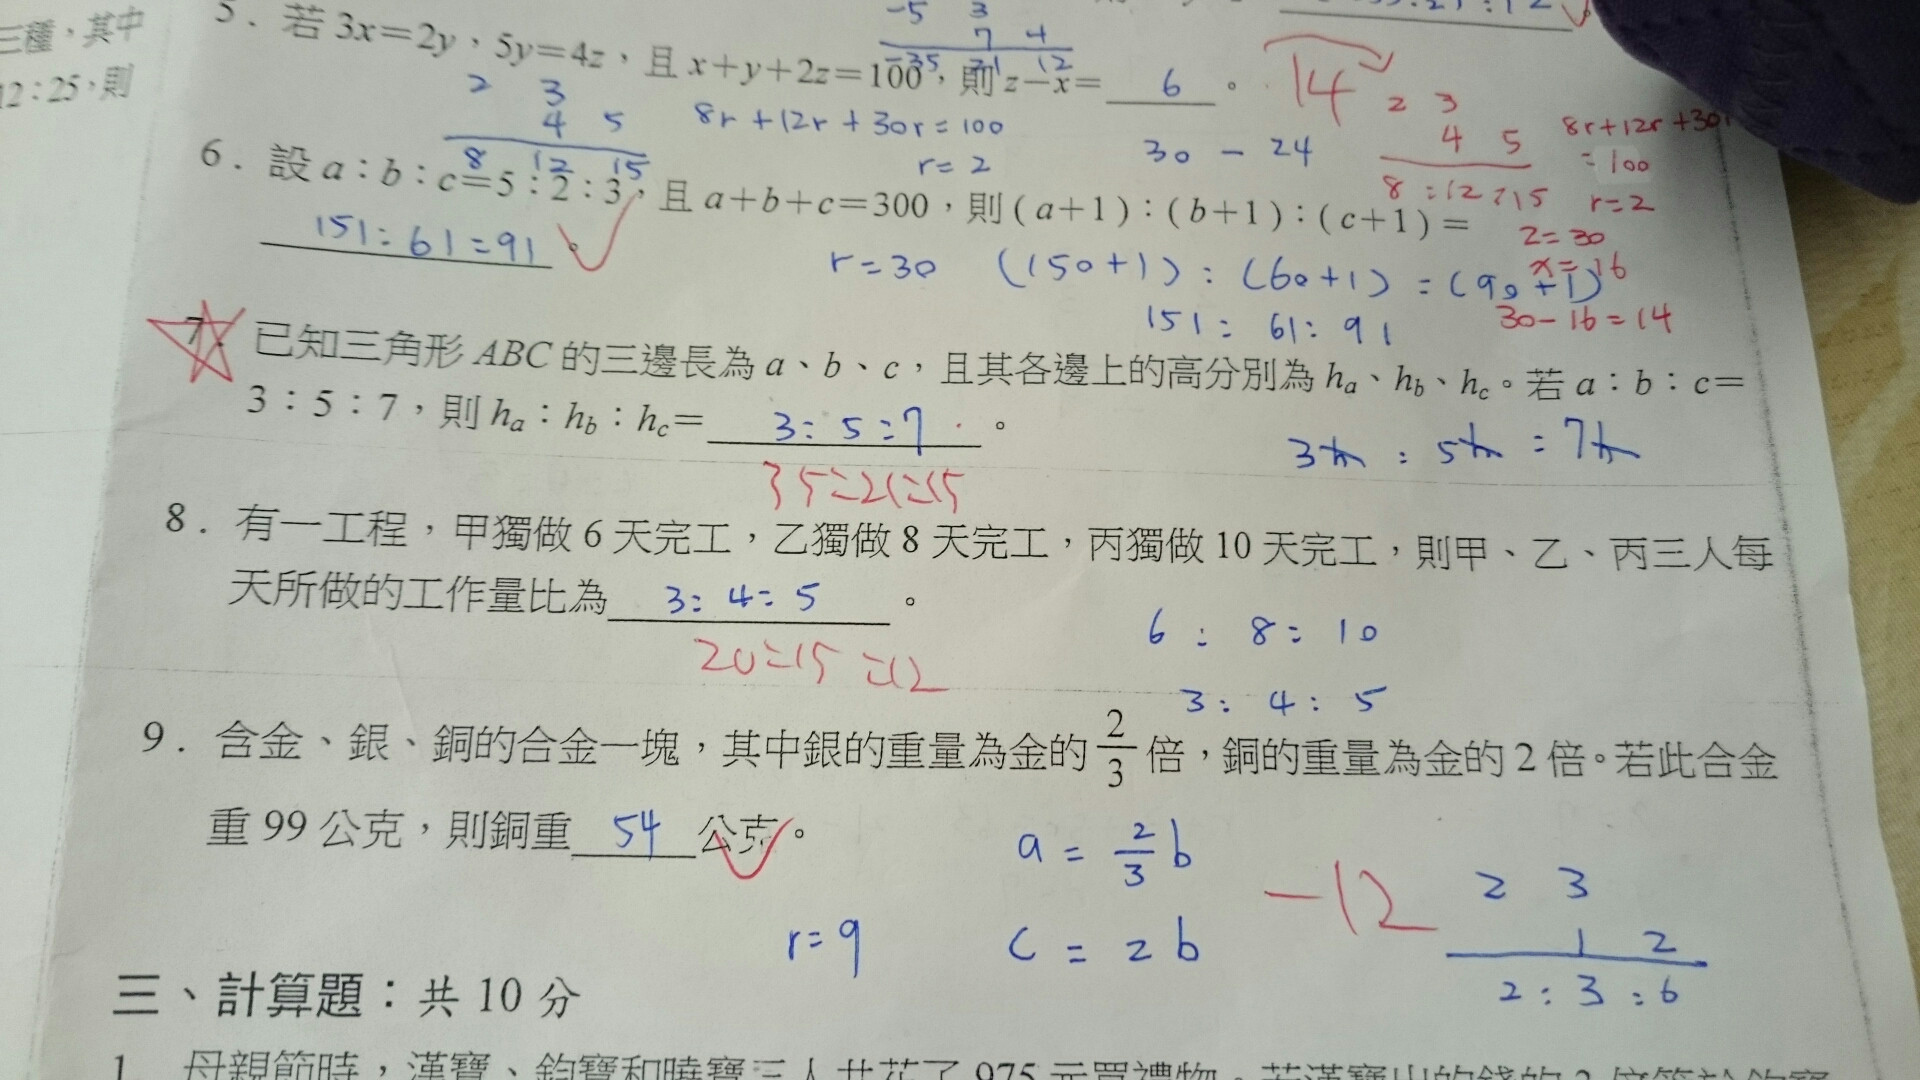 三種，其中
12：25，則
5．若 3x＝2y，5y＝4z，且 x＋y＋2z＝100，則 z－x＝ 6 。
-5 3
7 4
-35 21 12
14
2 3
4 5
8 12 15
8r+12r+30r=100
r=2
30 - 24
2 3
4 5
8:12:15
8r+12r+30r
=100
r=2
z=30
x=16
30-16=14
6．設 a：b：c＝5：2：3，且 a＋b＋c＝300，則 (a＋1)：(b＋1)：(c＋1)＝
151:61:91 。
r=30 (150+1):(60+1):(90+1)
151:61:91
7．已知三角形 ABC 的三邊長為 a、b、c，且其各邊上的高分別為 ha、hb、hc。若 a：b：c＝
3：5：7，則 ha：hb：hc＝ 3:5:7 。
35:21:15
3h : 5h : 7h
8．有一工程，甲獨做 6 天完工，乙獨做 8 天完工，丙獨做 10 天完工，則甲、乙、丙三人每
天所做的工作量比為 3:4:5 。
20:15:12
6:8:10
3:4:5
9．含金、銀、銅的合金一塊，其中銀的重量為金的 2/3 倍，銅的重量為金的 2 倍。若此合金
重 99 公克，則銅重 54 公克。
a = 2/3 b
c = 2b
r=9
-12
2 3
1 2
2:3:6
三、計算題：共 10 分
1. 母親節時，漢寶、鈞寶和曉寶三人共花了 975 元買禮物。若漢寶出的錢的